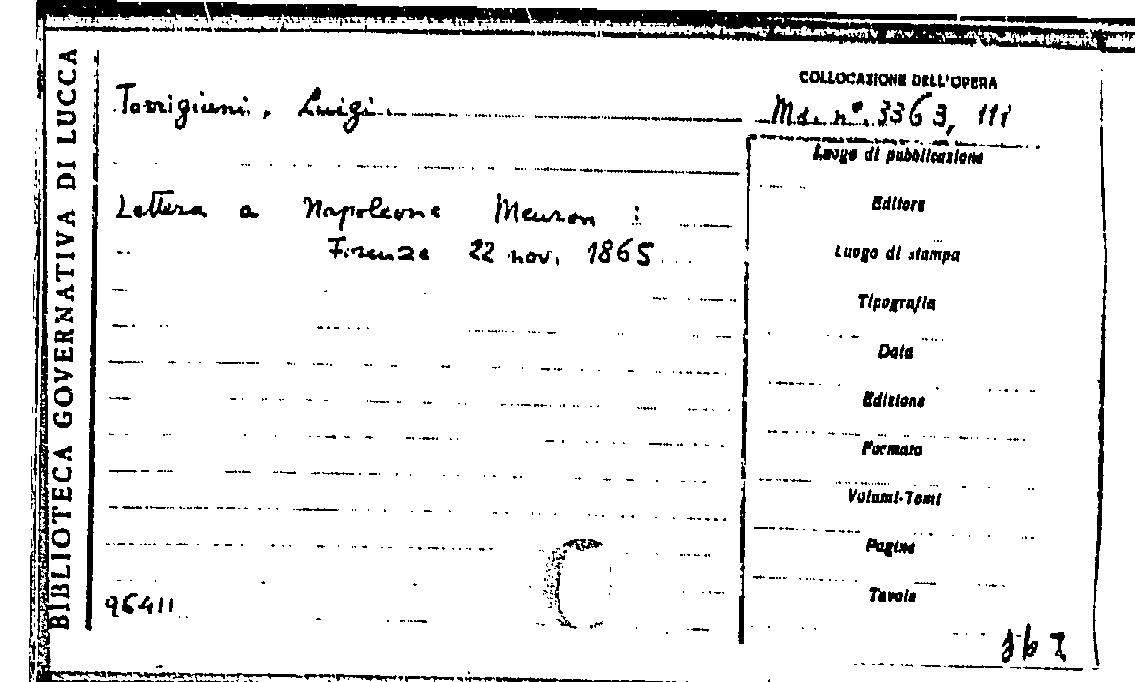 BIBLIOTECA GOVERNATIVA DI LUCCA
Torrigiani, Luigi
Lettera a Napoleone Meuron :
Firenze 22 nov. 1865
96411
COLLOCAZIONE DELL'OPERA
Ms. n°. 3363, 111
Luogo di pubblicazione
Editore
Luogo di stampa
Tipografia
Data
Edizione
Formato
Volumi-Tomi
Pagine
Tavole